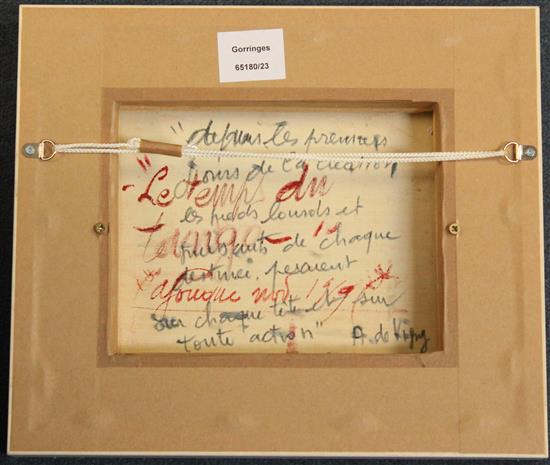 Gorringes
65180/23
"depuis les premiers
jours de la création
"Le temps du
les pieds lourds et
tango"
puissants de chaque
destinée, pesaient
sur chaque tête et sur
toute action" A. de Vigny